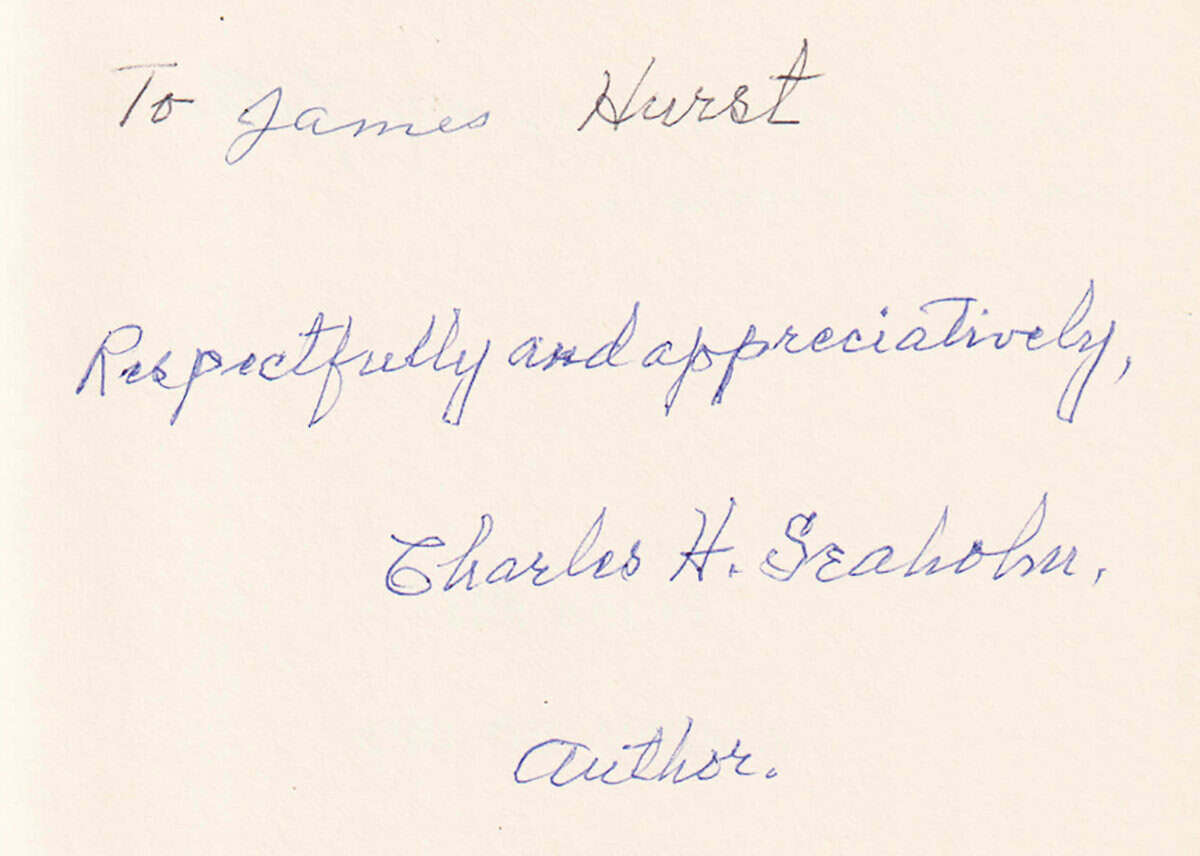 To James Hurst
Respectfully and appreciatively,
Charles H. Seaholm.
Author.